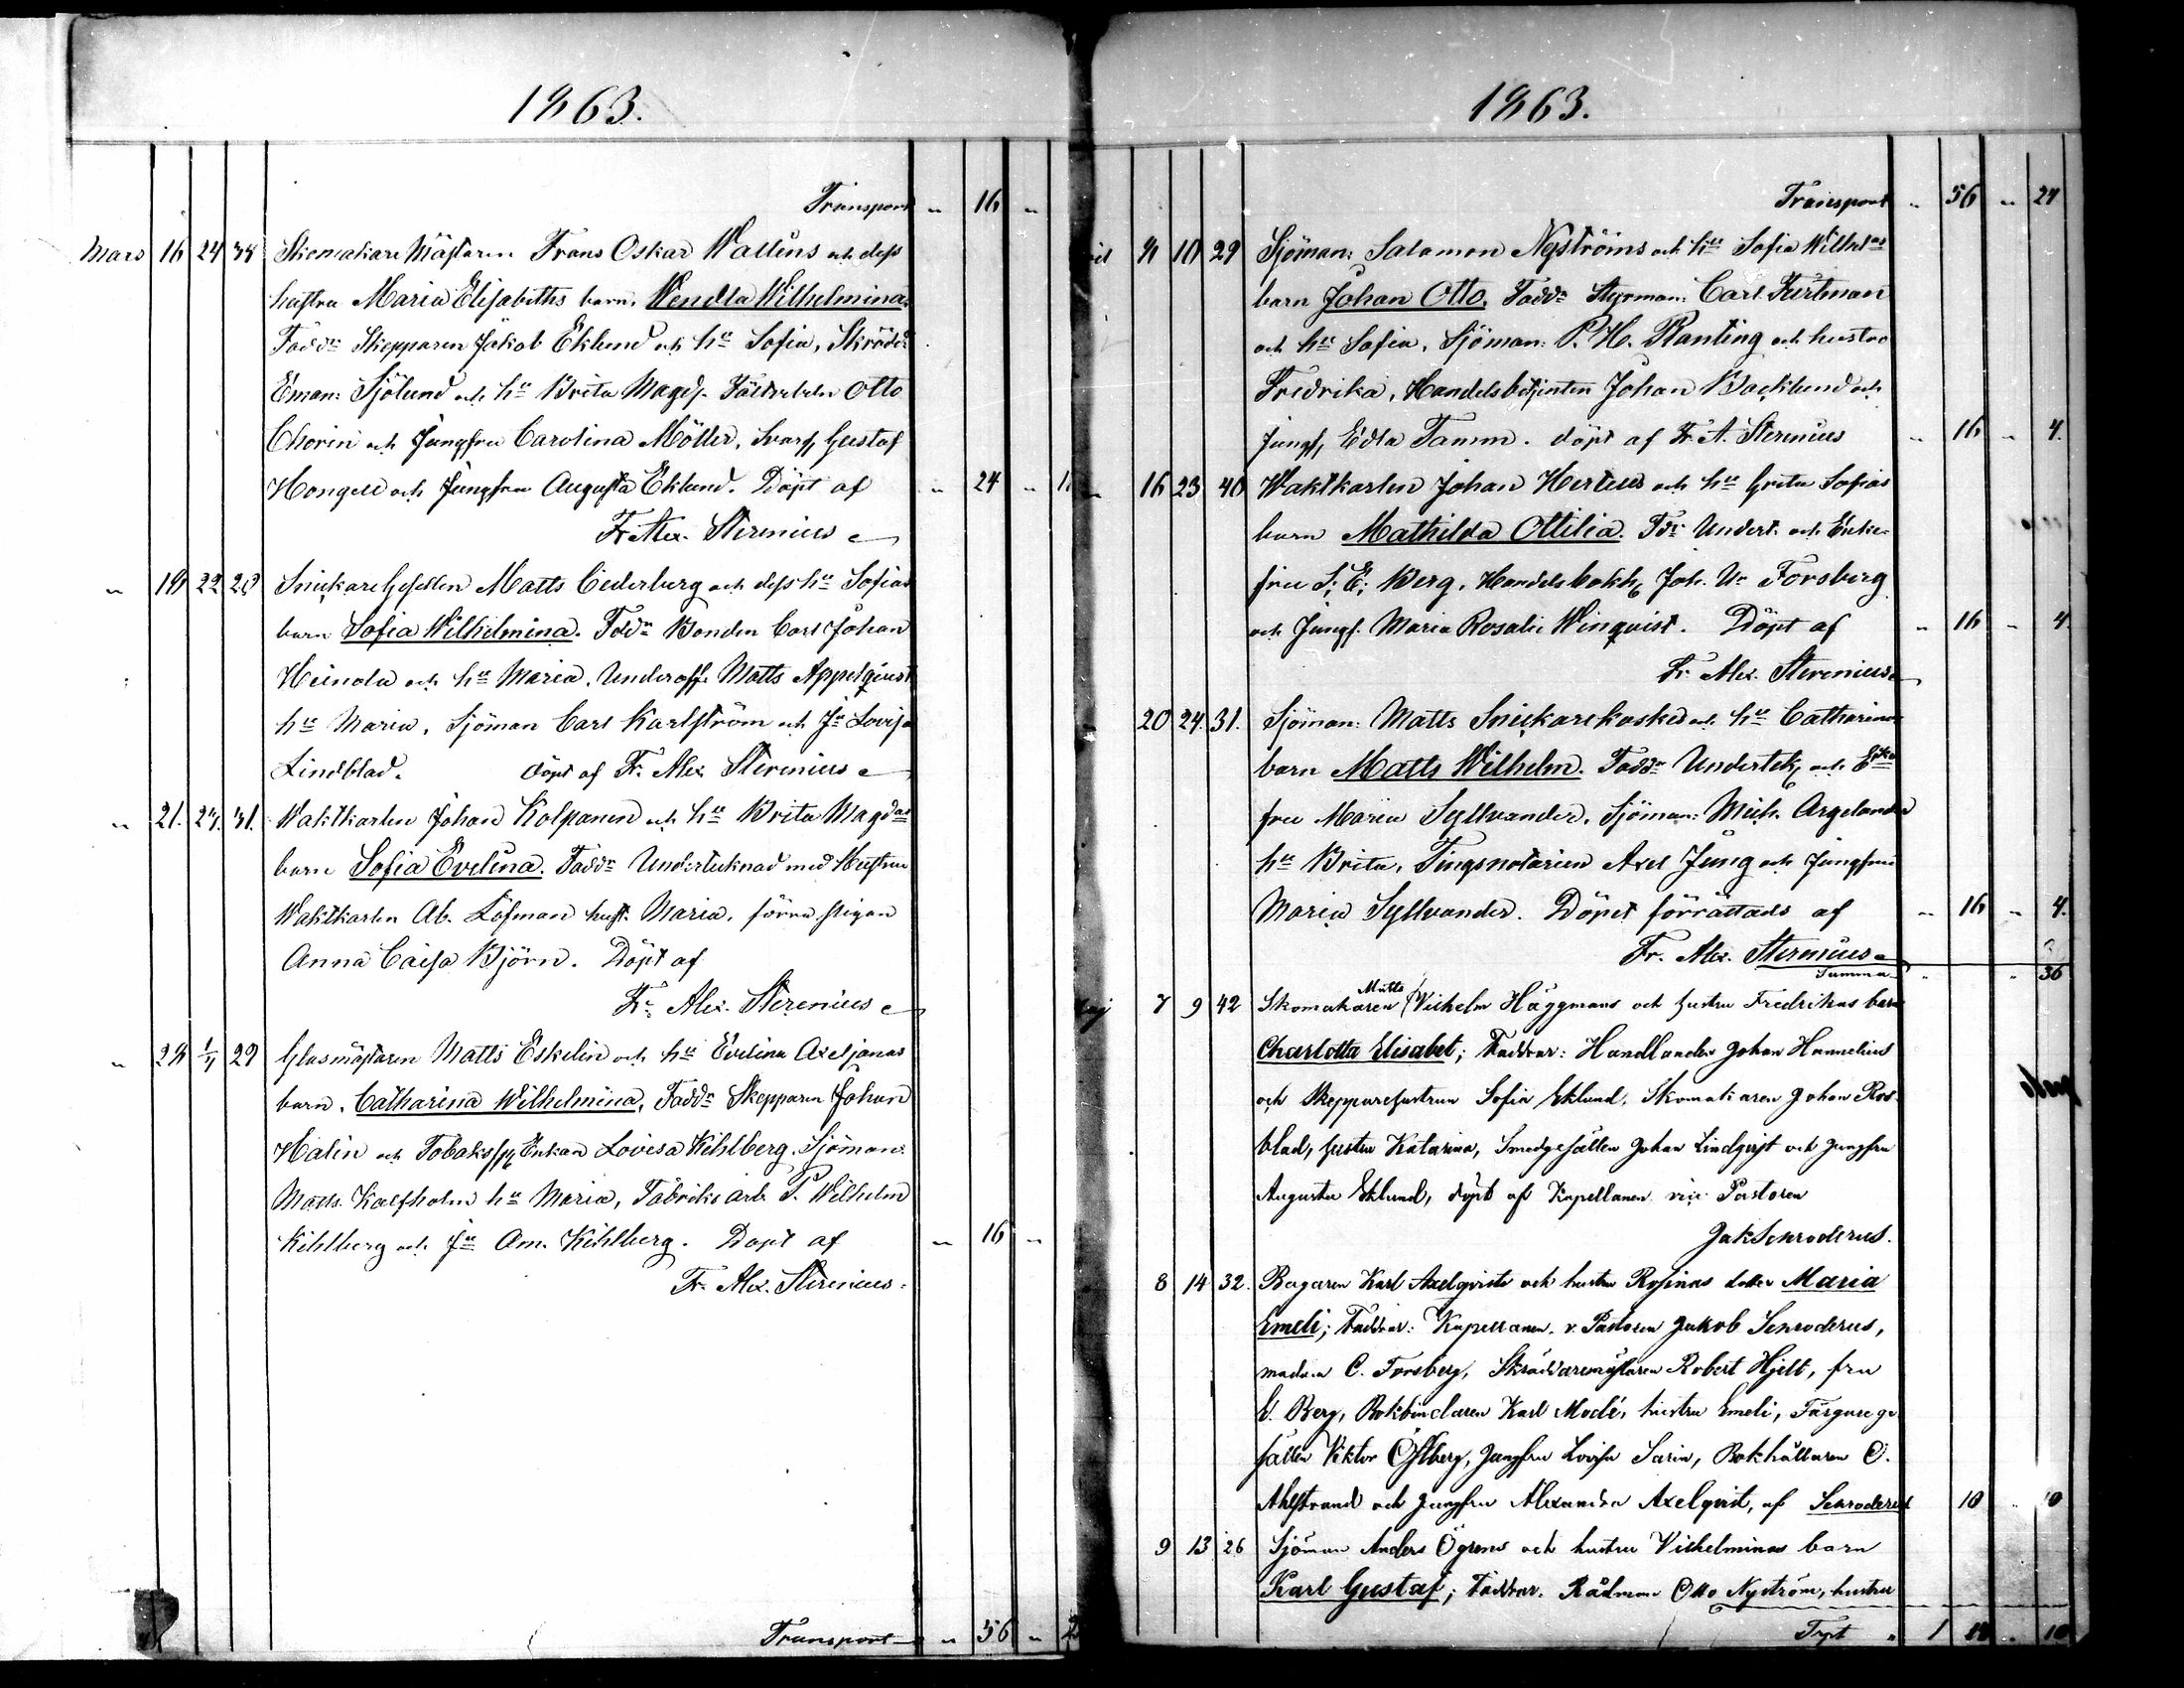 1863.
Transport " 16 "
Mars 16 24 38 Skomakare Mästaren Frans Oskar Walléns och dess
hustru Maria Elisabeths barn. Wendla Wilhelmina.
Faddr Skepparen Jakob Eklund och hu Sofia, Skrädd:
Eman: Sjölund och hu Brita Magd. Otto
Chorin och Jungfru Carolina Möller, Svarf. Gustaf
Hongell och Jungfru Augusta Eklund. Döpt af " 24 "
Fr. Alex. Sterenius
" 18 22 28 Snickare Gesellen Matts Cederberg och dess hu Sofias
barn Sofia Wilhelmina. Fddr Bonden Carl Johan
Heinola och hu Maria. Underoff. Matts Appelqvist
hu Maria, Sjöman Carl Karlström och Ju Lovisa
Lindblad. döpt af Fr. Alex Sterenius
" 21. 24. 31. Waktkarlen Johan Kolpanen och hu Brita Magdas
barn Sofia Evelina. Faddr Undertecknad med Hustru
Waktkarlen Ab. Löfman hust. Maria, förra pigan
Anna Caisa Björn. Döpt af
Fr. Alex. Sterenius
" 28 1/4 29 Glasmästaren Matts Eskelin och hu Evelina Axeljanas
barn. Catharina Wilhelmina, Faddr Skepparen Johan
Malin och Tobakssp. Enkan Lovisa Kihlberg. Sjöman:
Mads. Kalfholm hu Maria, Fabriks arb. P. Wilhelm
Kihlberg och Ju Am. Kihlberg. Döpt af " 16 "
Fr. Alex. Sterenius.
Transport " 56 "
1863.
Transport " 56 " 24
9 10 29 Sjöman: Salomon Nyströms och hu Sofia Wilhelas
barn Johan Otto. Faddr Styrman: Carl Furtman
och hu Sofia, Sjöman: P. H. Ranting och hustru
Fredrika, Handelsbetjenten Johan Backlund och
Jungf, Edla Tamm. döpt af Fr. A. Sterenius " 16 " 4.
16 23 40 Waktkarlen Johan Hertells och hu Greta Sofias
barn Mathilda Ottilia. Fdr Undert. och Enke-
fru S: E: Berg, Handelsbokh, Joh. Wr Forsberg
och Jungf. Maria Rosalie Winqvist. Döpt af " 16 " 4.
Fr. Alex. Sterenius
20 24. 31. Sjöman: Matts Snickarekoskis och hu Catharinas
barn Matts Wilhelm. Faddr Undertek, och Enke
fru Maria Syllvander. Sjöman: Mich. Argelander
hu Brita, Tingsnotarien Axel Jung och Jungfru
Maria Syllvander. Döpet förrättads af " 16 " 4.
Fr. Alex. Sterenius
Summa " " 36
Maj 7 9 42 Skomakaren Matts Vilhelm Häggmans och hustru Fredrikas barn
Charlotta Elisabet; Faddrar: Handlanden Johan Hannelius
och Skepparehustrun Sofia Eklund, Skomakaren Johan Ros-
blad, hustru Katarina, Smedgesällen Johan Lindqvist och jungfru
Augusta Eklund, döpt af Kapellanen vice Pastoren
Jak Schroderus.
8 14 32. Bagaren Karl Axelqvists och hustru Rosinas dotter Maria
Emeli; Faddrar: Kapellanen. v. Pastoren Jakob Schroderus,
madam C. Forsberg, Skräddaremästaren Robert Hjelt, fru
E. Berg, Bokbindaren Karl Modé, hustru Emeli, Färgarege-
sällen Viktor Östberg, Jungfru Lovisa Sarin, Bokhållaren C.
Ahlstrand och jungfru Alexandra Axelqvist, af Schroderus 10 " 10
9 13 26 Sjöman Anders Ögrens och hustru Vilhelminas barn
Karl Gustaf; Faddrar. Rådman Otto Nyström, hustru
Trpt " 1 10 " 10